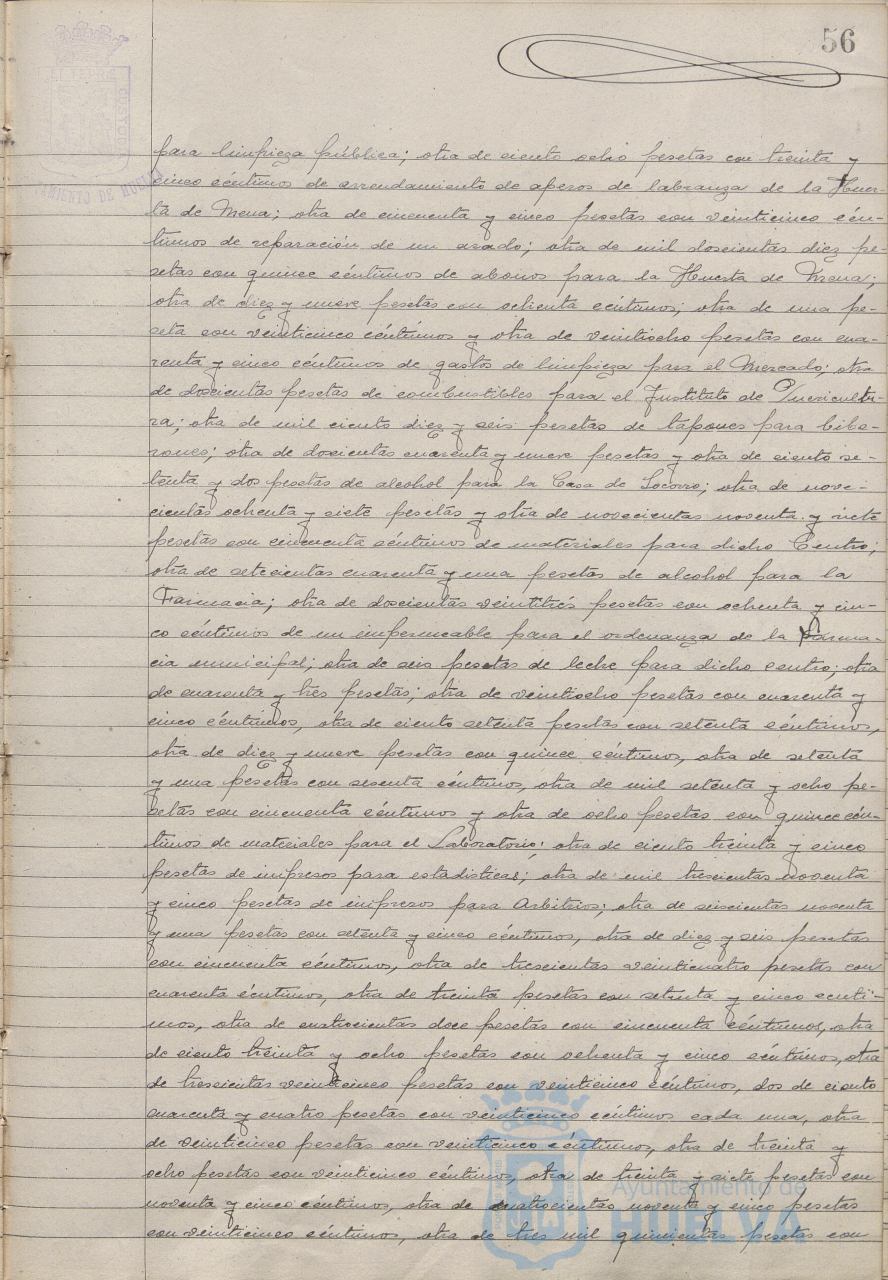 56
para limpieza pública; otra de ciento ocho pesetas con treinta y
cinco céntimos de arrendamiento de aperos de labranza de la Huer-
ta de Mena; otra de cincuenta y cinco pesetas con veinticinco cén-
timos de reparación de un arado; otra de mil doscientas diez pe-
setas con quince céntimos de abonos para la Huerta de Mena;
otra de diez y nueve pesetas con ochenta céntimos; otra de una pe-
seta con veinticinco céntimos y otra de veintiocho pesetas con cua-
renta y cinco céntimos de gastos de limpieza para el Mercado; otra
de doscientas pesetas de combustibles para el Instituto de Puericultu-
ra; otra de mil ciento diez y seis pesetas de tapones para bibe-
rones; otra de doscientas cuarenta y nueve pesetas y otra de ciento se-
tenta y dos pesetas de alcohol para la Casa de Socorro; otra de nove-
cientas ochenta y siete pesetas y otra de novecientas noventa y siete
pesetas con cincuenta céntimos de materiales para dicho Centro;
otra de setecientas cuarenta y una pesetas de alcohol para la
Farmacia; otra de doscientas veintitrés pesetas con ochenta y cin-
co céntimos de un impermeable para el ordenanza de la Farma-
cia municipal; otra de seis pesetas de leche para dicho centro; otra
de cuarenta y tres pesetas; otra de veintiocho pesetas con cuarenta y
cinco céntimos, otra de ciento setenta pesetas con setenta céntimos,
otra de diez y nueve pesetas con quince céntimos, otra de setenta
y una pesetas con sesenta céntimos, otra de mil setenta y ocho pe-
setas con cincuenta céntimos y otra de ocho pesetas con quince cén-
timos de materiales para el Laboratorio; otra de ciento treinta y cinco
pesetas de impresos para estadísticas; otra de mil trescientas noventa
y cinco pesetas de impresos para Arbitrios; otra de seiscientas noventa
y una pesetas con setenta y cinco céntimos, otra de diez y seis pesetas
con cincuenta céntimos, otra de trescientas veinticuatro pesetas con
cuarenta céntimos, otra de treinta pesetas con setenta y cinco cénti-
mos, otra de cuatrocientas doce pesetas con cincuenta céntimos, otra
de ciento treinta y ocho pesetas con ochenta y cinco céntimos, otra
de trescientas veinticinco pesetas con veinticinco céntimos, dos de ciento
cuarenta y cuatro pesetas con veinticinco céntimos cada una, otra
de veinticinco pesetas con veinticinco céntimos, otra de treinta y
ocho pesetas con veinticinco céntimos, otra de treinta y siete pesetas con
noventa y cinco céntimos, otra de cuatrocientas noventa y cinco pesetas
con veinticinco céntimos, otra de tres mil quinientas pesetas con
Ayuntamiento de
HUELVA